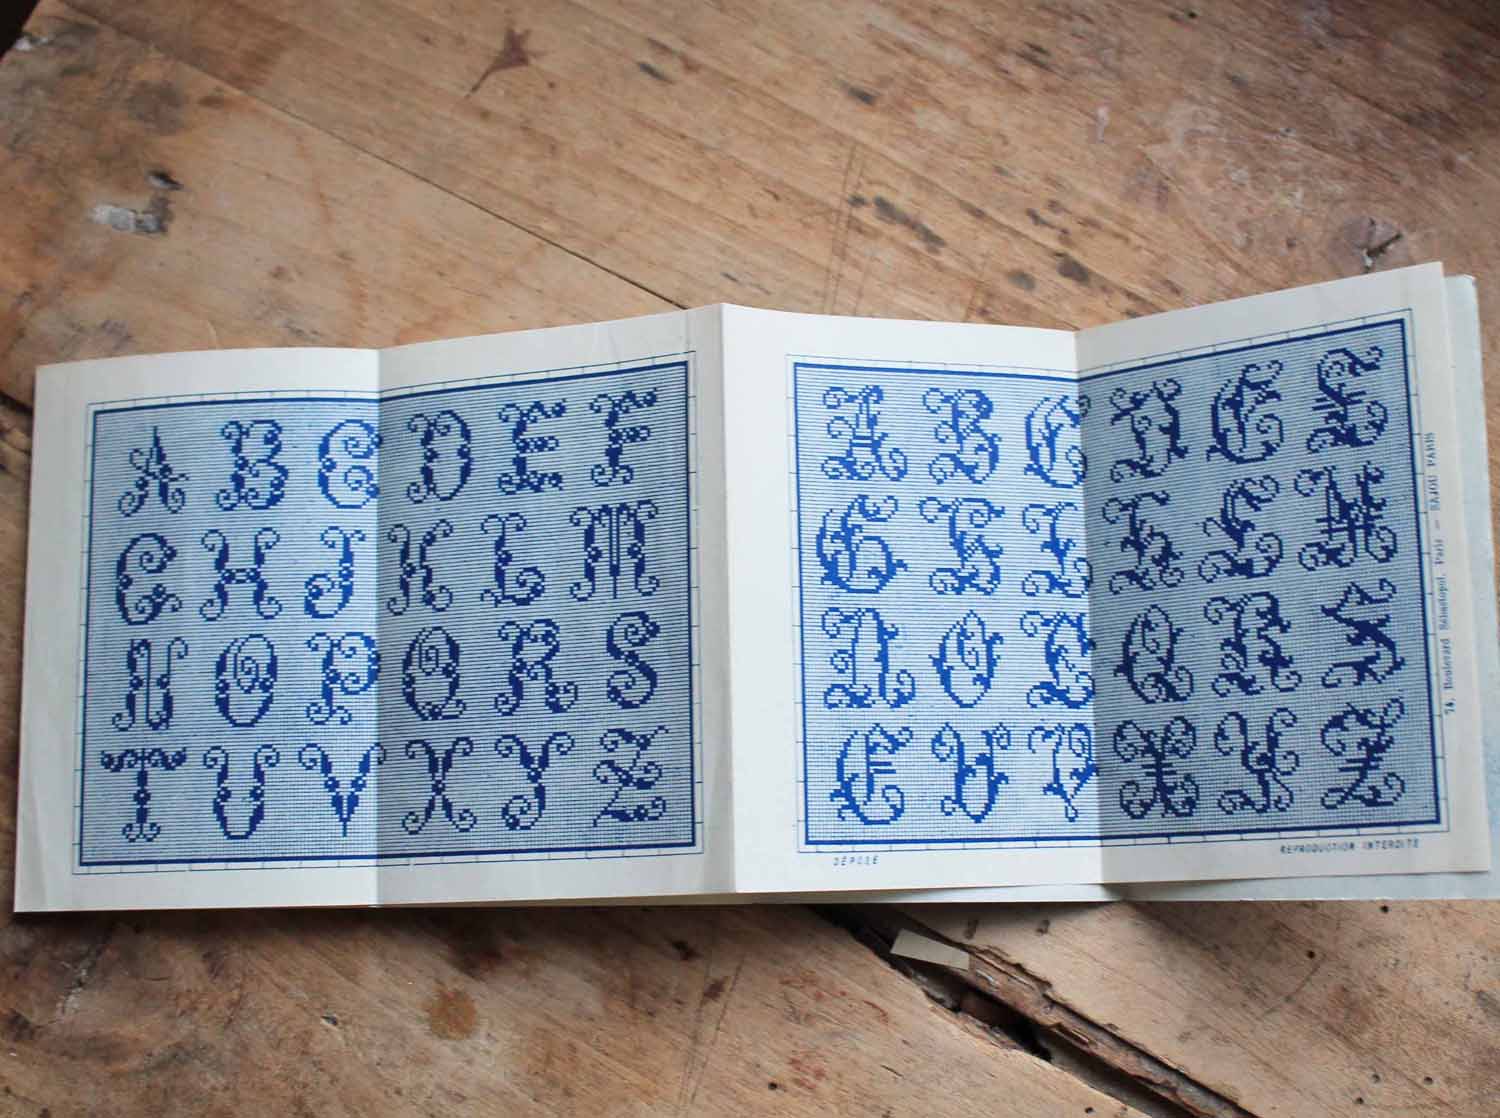 A B C D E F
G H J K L M
N O P Q R S
T U V X Y Z
A B C D E F
G H I K L M
N O P Q R S
T U V X Y Z
DÉPOSÉ
REPRODUCTION INTERDITE
74, Boulevard Sébastopol, Paris — SAJOU PARIS